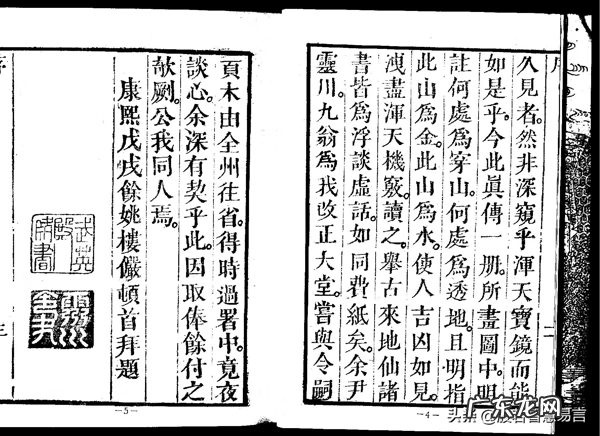 序
二
久見者。然非深窺乎渾天寶鏡而能
如是乎。今此眞傳一冊。所畫圖中。明
註何處爲穿山。何處爲透地。且明指
此山爲金。此山爲水。使人吉凶如見。
洩盡渾天機竅。讀之。舉古來地仙諸
書皆爲浮談虛話。如同費紙矣。余尹
靈川。九翁爲我改正大堂。嘗與令嗣
—4—
頁木由全州往省。得時過署中。竟夜
談心。余深有契乎此。因取俸餘付之
欹劂。公我同人焉。
康熙戊戌餘姚樓儼頓首拜題
武英殿
三
—5—
广东龙网
头条